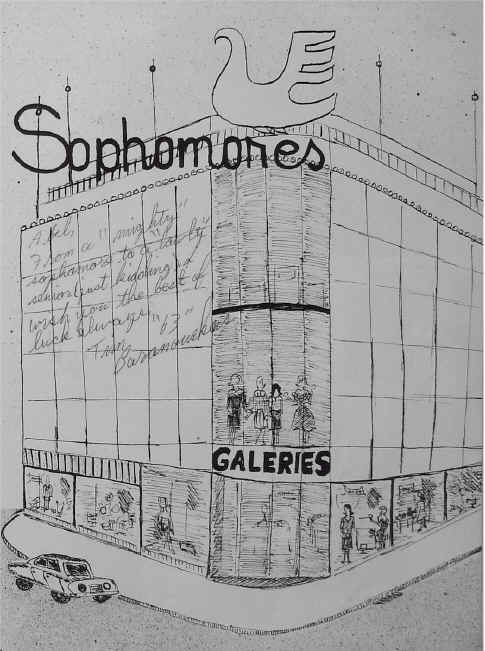 Sophomores
From a "mighty"
sophomore to a "lowly"
senior (just kidding). I
wish you the best of
luck always.
"63"
Baranauskas
GALERIES